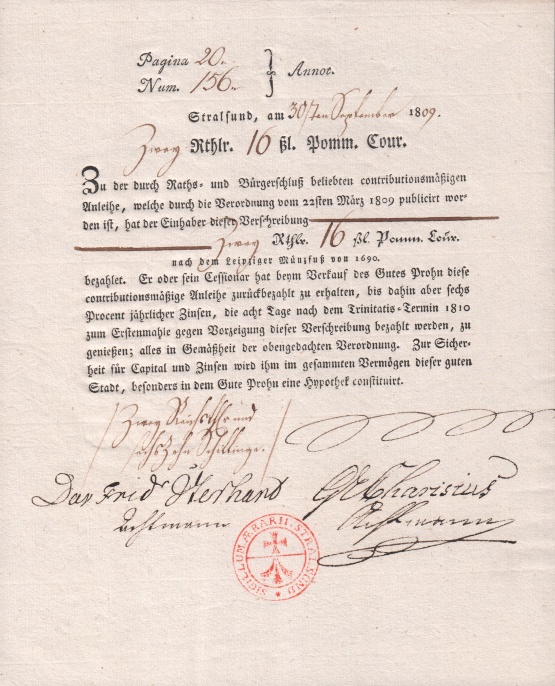 Pagina 20.
Num. 156.
Annot.
Stralsund, am 30/ten September 1809.
Zwey Rthlr. 16 ßl. Pomm. Cour.
Zu der durch Raths- und Bürgerschluß beliebten contributionsmäßigen
Anleihe, welche durch die Verordnung vom 22sten März 1809 publicirt wor-
den ist, hat der Einhaber dieser Verschreibung
Zwey Rthlr. 16 ßl. Pomm. Cour.
nach dem Leipziger Münzfuß von 1690.
bezahlet. Er oder sein Cessionar hat beym Verkauf des Gutes Prohn diese
contributionsmäßige Anleihe zurückbezahlt zu erhalten, bis dahin aber sechs
Procent jährlicher Zinsen, die acht Tage nach dem Trinitatis-Termin 1810
zum Erstenmahle gegen Vorzeigung dieser Verschreibung bezahlt werden, zu
genießen; alles in Gemäßheit der obengedachten Verordnung. Zur Sicher-
heit für Capital und Zinsen wird ihm im gesammten Vermögen dieser guten
Stadt, besonders in dem Gute Prohn eine Hypothek constituirt.
Zwey Reichsthlr und
sechszehn Schillinge.
Dav Frid Sterhand Charisius
Achtmann Achtmann
SIGILLUM ÆRARII STRALSUND